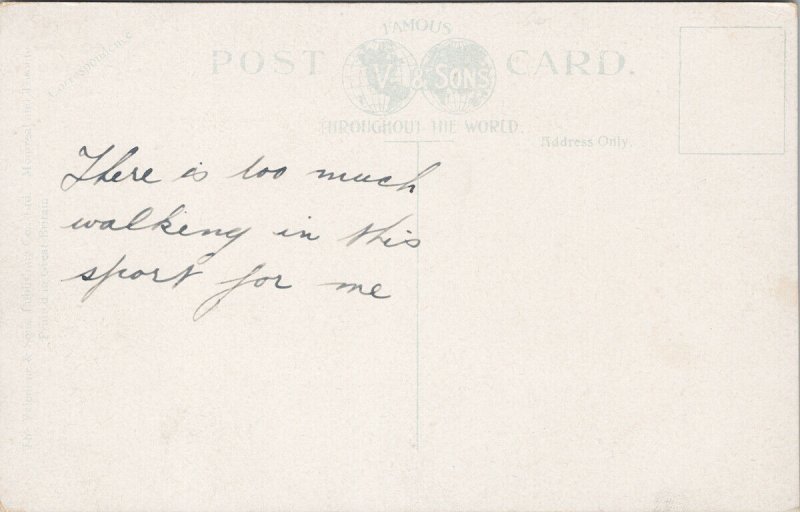 FAMOUS
POST CARD.
V. & SONS
THROUGHOUT THE WORLD.
Correspondence
Address Only.
There is too much
walking in this
sport for me
The Valentine & Sons Publishing Co., Ltd., Montreal and Toronto.
Printed in Great Britain.